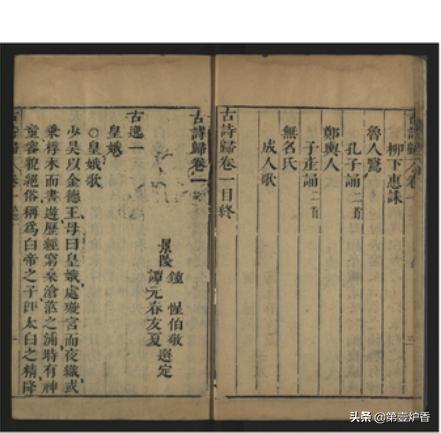 古詩歸卷一
柳下惠誄
魯人鷖
孔子誦二首
鄭輿人
子產誦二首
無名氏
成人歌
古詩歸卷一目終
古詩歸卷一
景陵
鍾惺伯敬
譚元春友夏
選定
古逸一
皇娥
○皇娥歌
少昊以金德王母曰皇娥處璇宮而夜織或
乘桴木而晝遊歷經窮桑滄茫之浦時有神
童容貌絕俗稱爲白帝之子即太白之精降
古詩歸卷一
头条 @第壹炉香